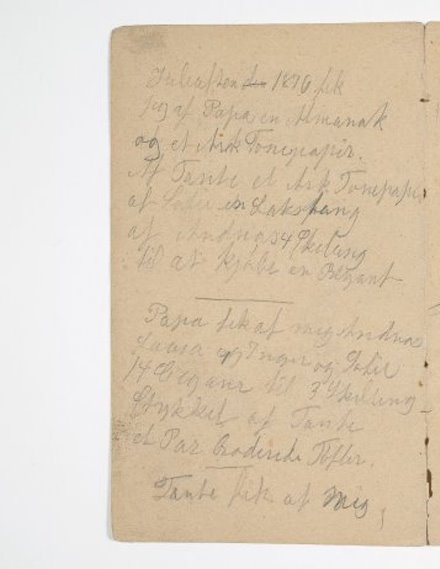 Juleaften den 1870 fik
jeg af Papa en Almanak
og et Ark Tonepapir.
Af Tante et Ark Tonepapir
af Sofie en Lakstang
af Andreas 4 Skilling
til at Kjøbe en
Papa fik af mig Andreas
og Inger og Sofie
14 til 3 Skilling
Stykket af Tante
et Par Broderede Tøfler.
Tante fik af mig,